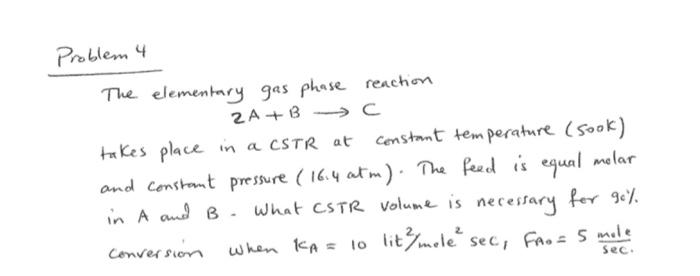 Problem 4
The elementary gas phase reaction
2A + B → C
takes place in a CSTR at constant temperature (500K)
and constant pressure (16.4 atm). The feed is equal molar
in A and B. What CSTR volume is necessary for 90%
conversion when KA = 10 lit²/mole² sec, FA0 = 5 mole/sec.